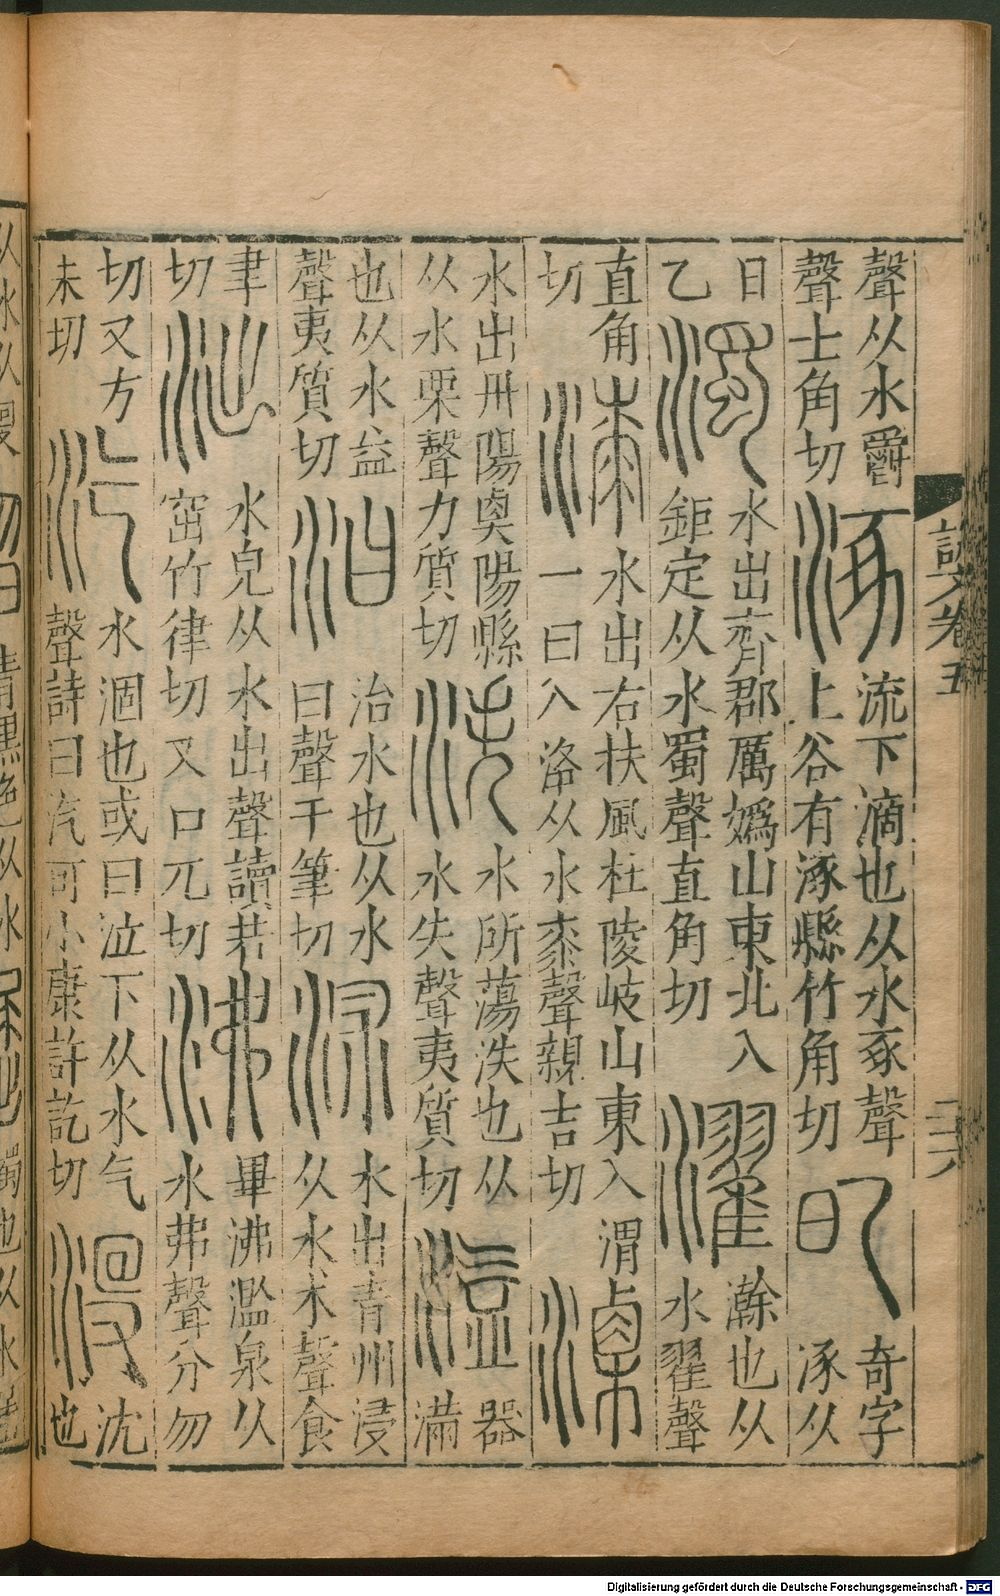 說文卷五
二六
聲从水爵
聲士角切
涿
流下滴也从水豖聲
上谷有涿縣竹角切
𣄵
奇字
涿从
日
乙
濁
水出齊郡厲嬀山東北入
鉅定从水蜀聲直角切
濯
瀚也从
水翟聲
直角
切
漆
水出右扶風杜陵岐山東入渭
一曰入洛从水桼聲親吉切
溧
水出丹陽溧陽縣
从水栗聲力質切
泆
水所蕩泆也从
水失聲夷質切
溢
器
滿
也从水益
聲夷質切
汩
治水也从水
曰聲于筆切
沭
水出青州浸
从水术聲食
聿
切
泏
水皃从水出聲讀若
窋竹律切又口兀切
沸
畢沸濫泉从
水弗聲分勿
切又方
未切
汽
水涸也或曰泣下从水气
聲詩曰汽可小康許訖切
沒
沈
也
Digitalisierung gefördert durch die Deutsche Forschungsgemeinschaft - DFG